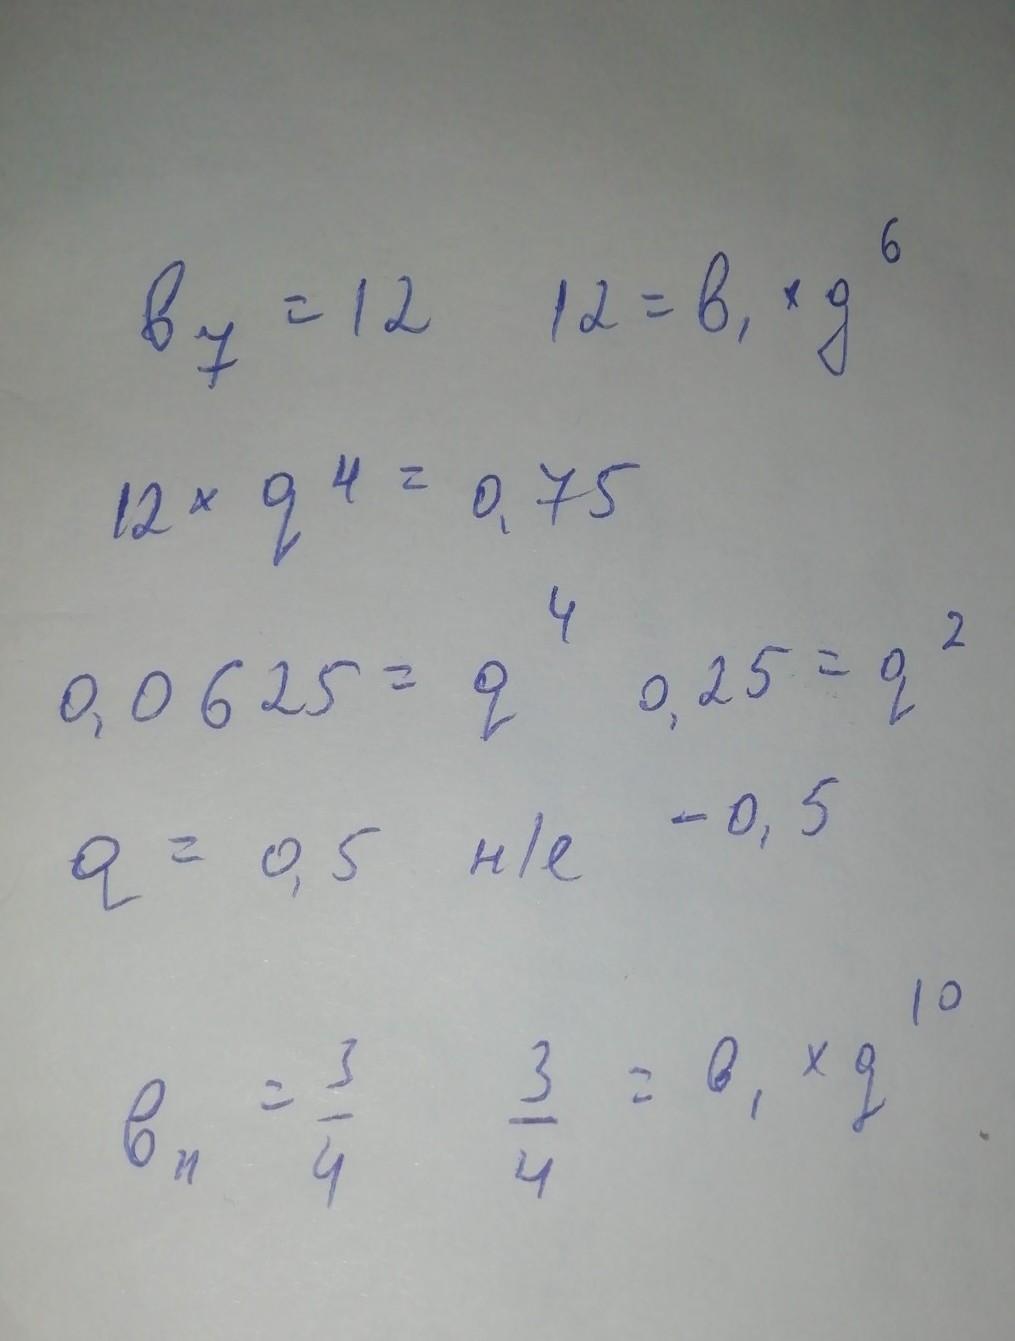 в₇ = 12 12 = в₁ × q⁶
12 × q⁴ = 0,75
0,0625 = q⁴ 0,25 = q²
q = 0,5 и/е -0,5
в₁₁ = 3/4 3/4 = в₁ × q¹⁰